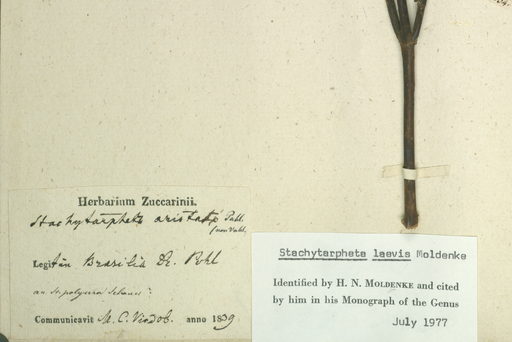 Herbarium Zuccarinii.
Stachytarpheta aristata Pohl.
(non Vahl.
Legit in Brasilia Dr. Pohl
an St. polyura Schauer?
Communicavit M. C. Vindob. anno 1839
Stachytarpheta laevis Moldenke
Identified by H. N. MOLDENKE and cited
by him in his Monograph of the Genus
July 1977